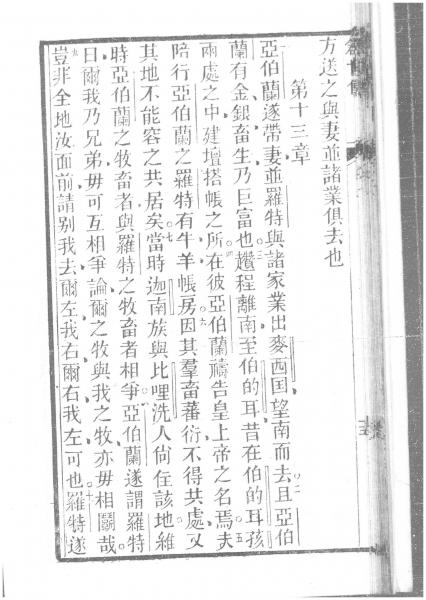 方送之與妻並諸業俱去也
第十三章
亞伯蘭遂帶妻並羅特與諸家業出麥西国望南而去且亞伯
蘭有金銀畜生乃巨富也趲程離南至伯的耳昔在伯的耳孩
兩處之中建壇搭帳之所在彼亞伯蘭禱告皇上帝之名焉夫
陪行亞伯蘭之羅特有牛羊帳房因其羣畜蕃衍不得共處又
其地不能容之共居矣當時迦南族與比哩洗人尙住該地維
時亞伯蘭之牧畜者與羅特之牧畜者相爭亞伯蘭遂謂羅特
曰爾我乃兄弟毋可互相爭論爾之牧與我之牧亦毋相鬬哉
豈非全地汝面前請别我去爾左我右爾右我左可也羅特遂